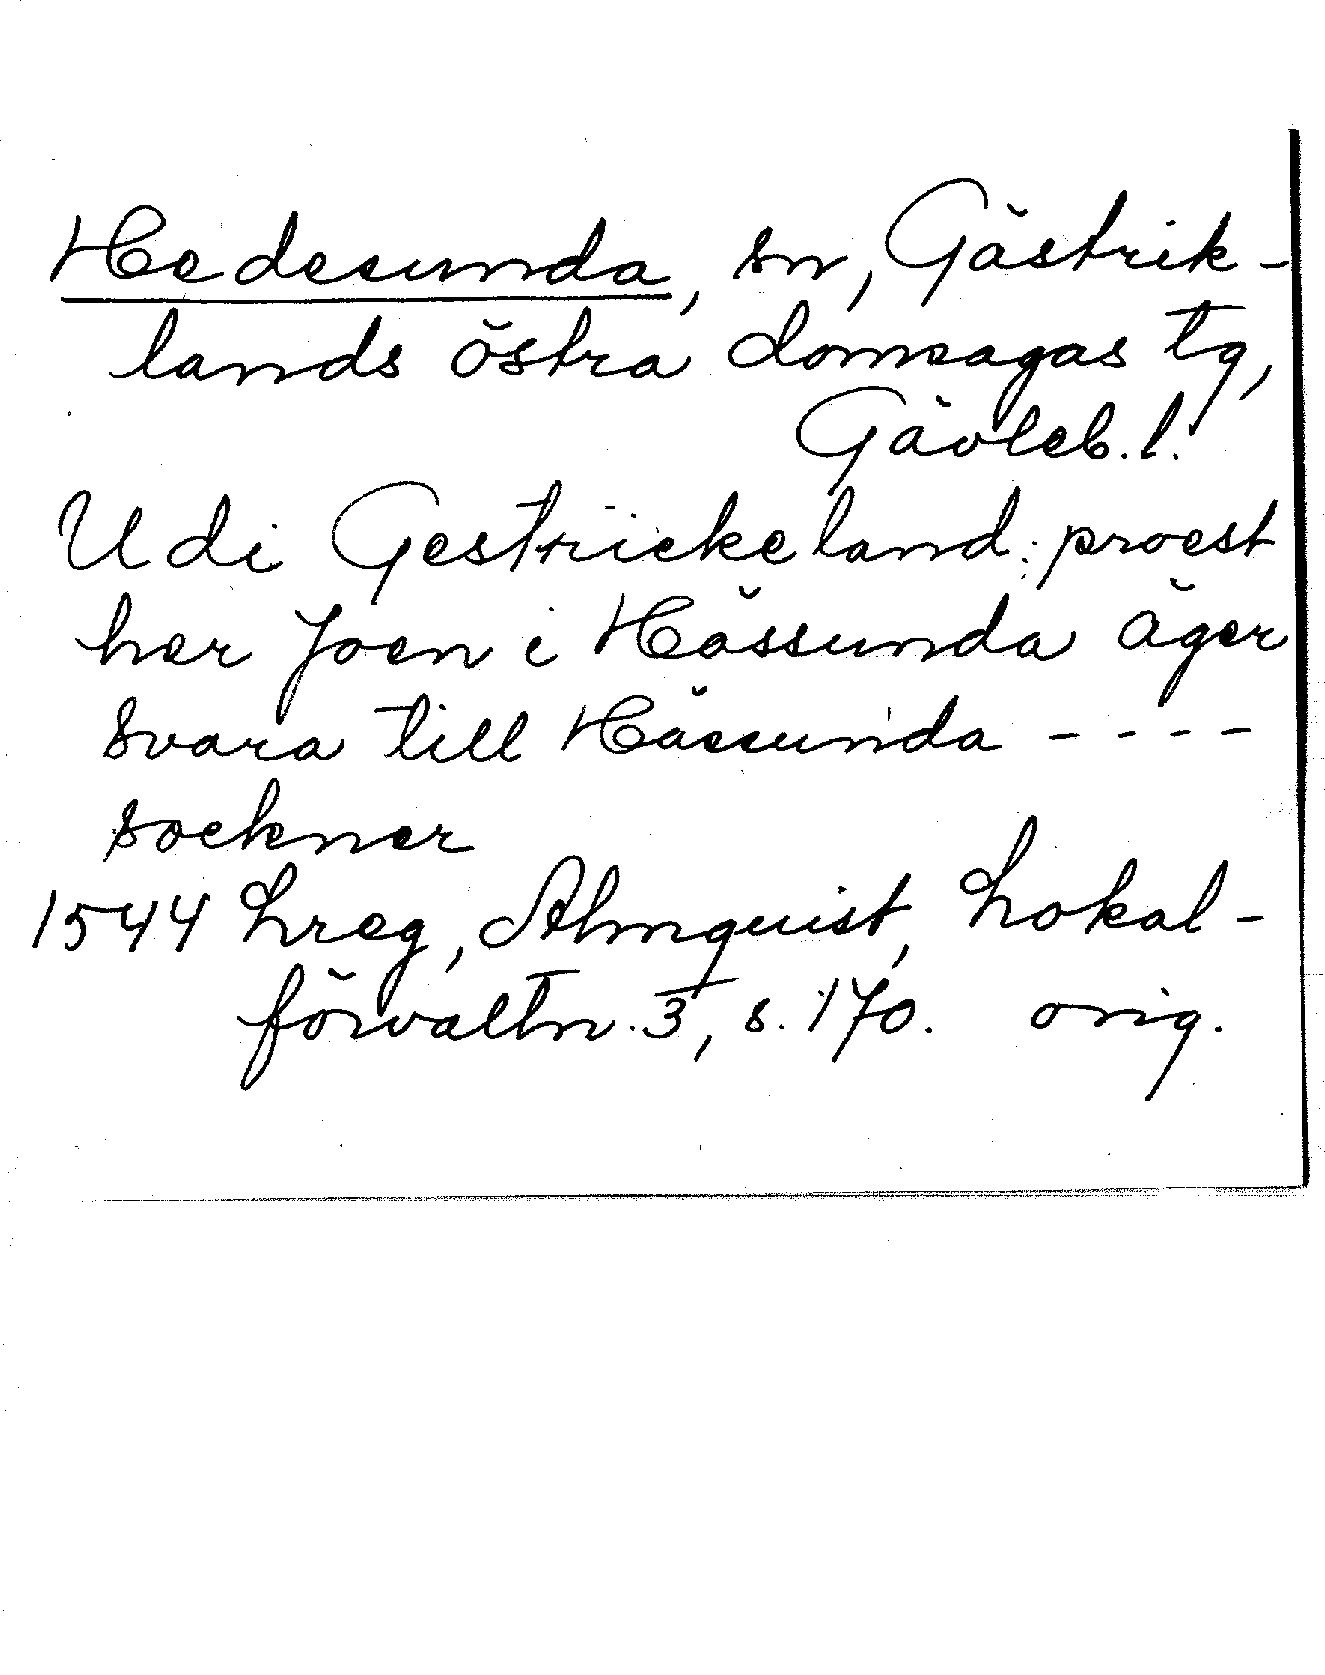 Hedesunda, sn, Gästrik-
lands östra domsagas tg,
Gävleb.l.
Udi Gestrickeland: proest
her Joen i Hässunda äger
svara till Hässunda ----
sockner
1544 Lreg, Almquist, Lokal-
förvaltn. 3, s. 170. orig.